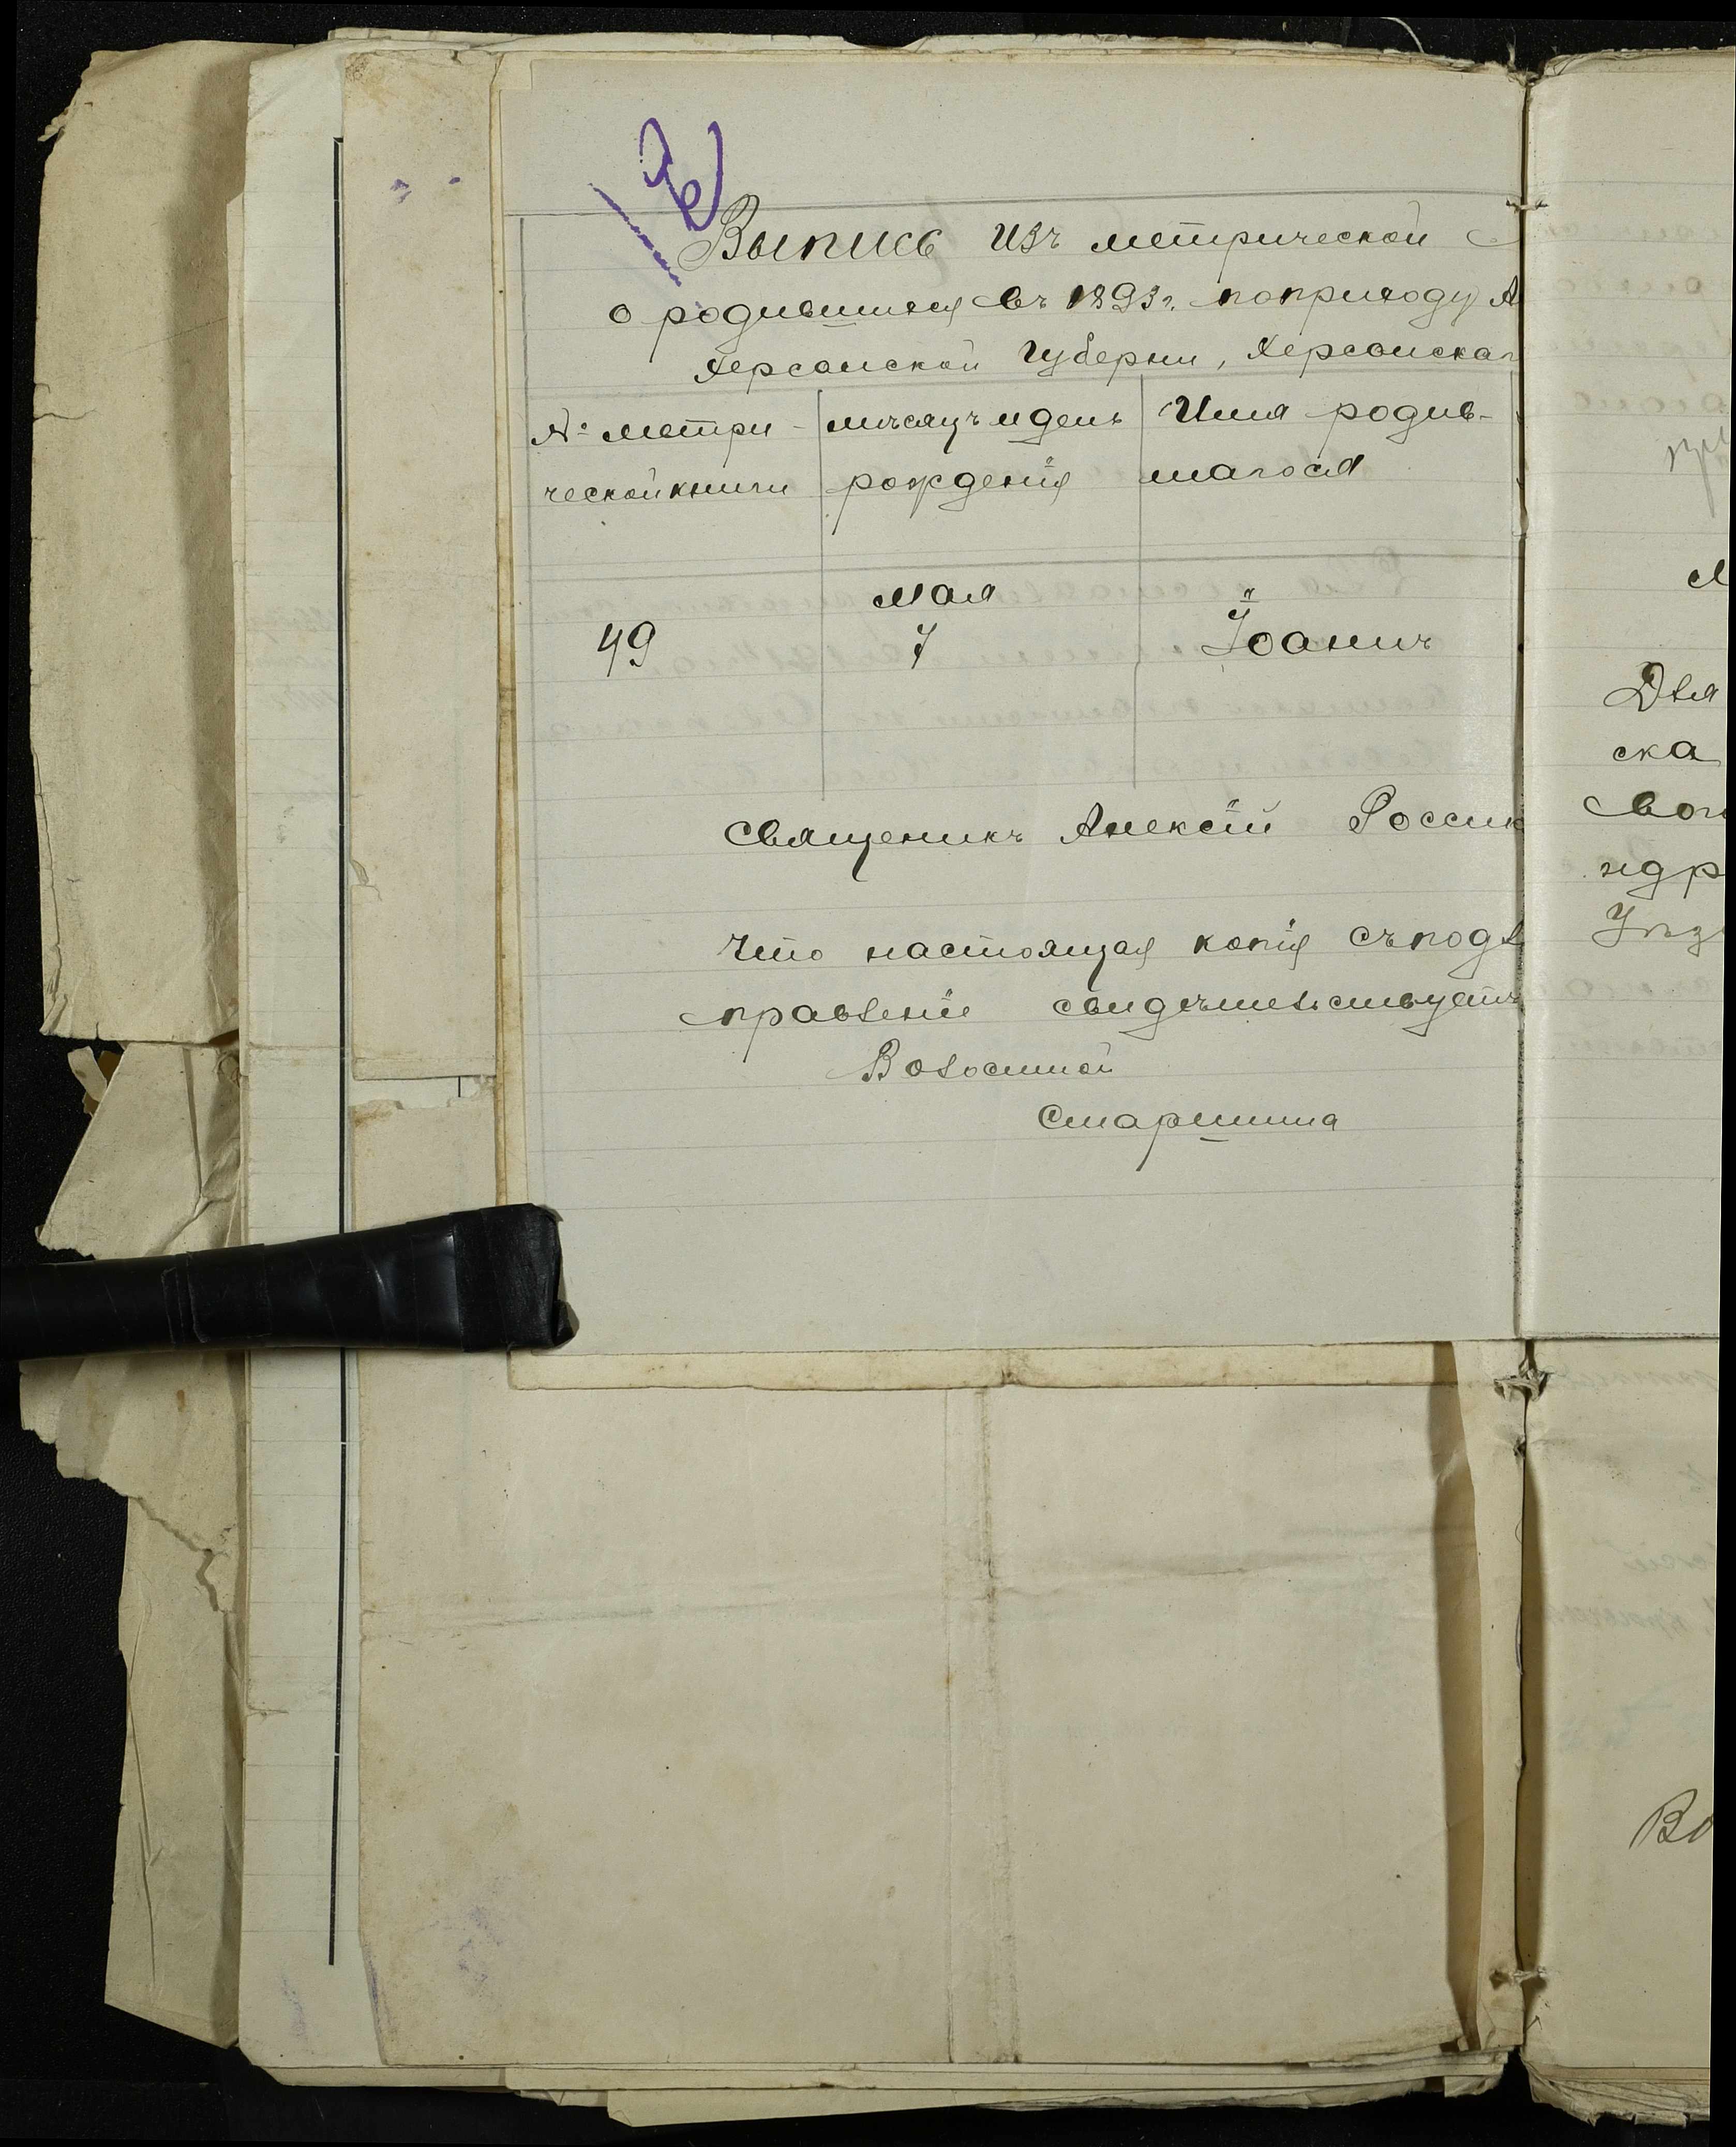 Выпись изъ метрической
о родившихся въ 1893 г. поприходу А
Херсонской губерни, Херсонска
№ метри-
ческой книги
мѣсяцъ и день
рожденія
Имя родив-
шагося
49
Мая
7
Іоаннъ
Священикъ Алексѣй Россин
Что настоящая копія съ подл
правленіе свидѣтельствуетъ
Волостной
Старшина
Для
ска